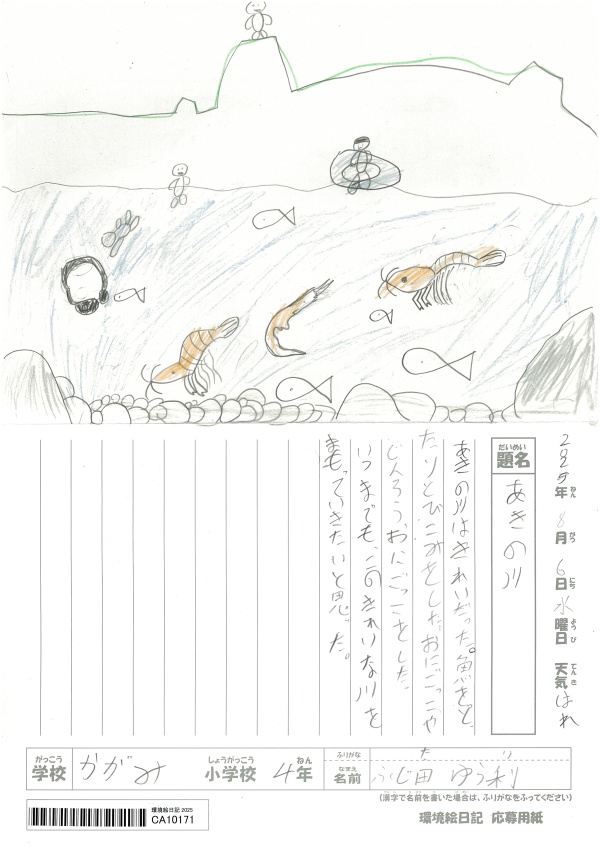 2025年 8月 6日 水曜日 天気 はれ
ねん がつ にち ようび てんき
だいめい
題名 あきの川
あきの川はきれいだった。魚をと
たりとびこみをした。おにごっこや
どんろう、おにごっこをした。
いつまでも、このきれいな川を
まもっていきたいと思った。
がっこう しょうがっこう ねん ふりがな た り
学校 かがみ 小学校 4年 なまえ 名前 ふじ田 ゆう利
(漢字で名前を書いた場合は、ふりがなをふってください)
環境絵日記 2025
CA10171
環境絵日記 応募用紙